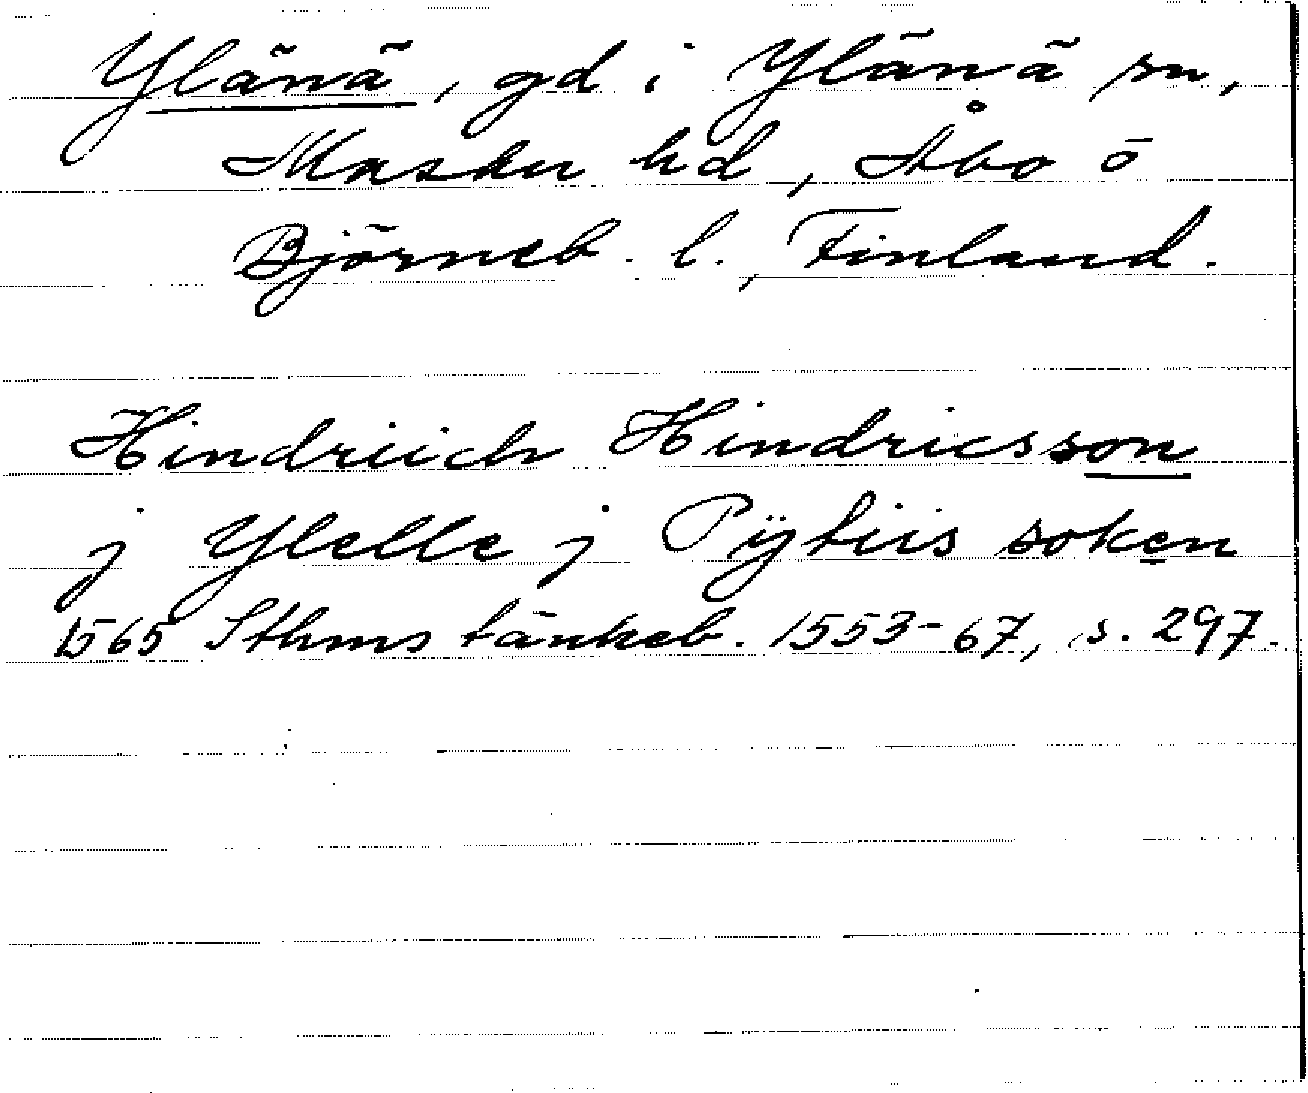 Ylänä, gd i Ylänä sn,
Masku hd, Åbo o
Björneb. l., Finland.
Hindriich Hindricsson
j Ylelle j Pÿtiis soken
1565 Sthms tänkeb. 1553-67, s. 297.